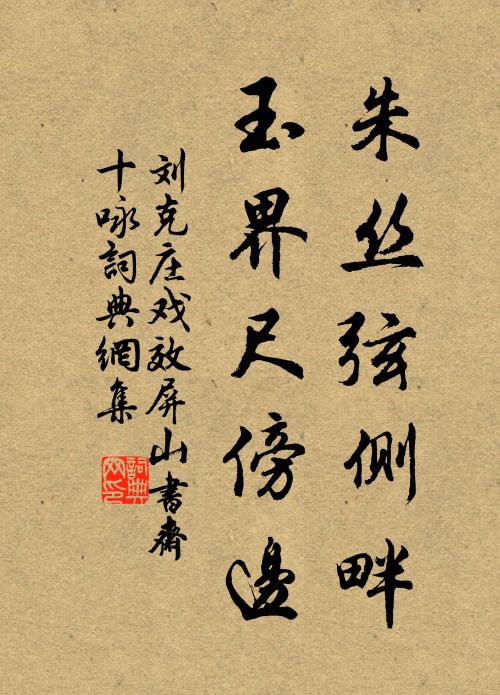 朱丝弦侧畔
玉界尺傍邊
刘克庄戏效屏山書齋
十咏詞典網集
詞典网印